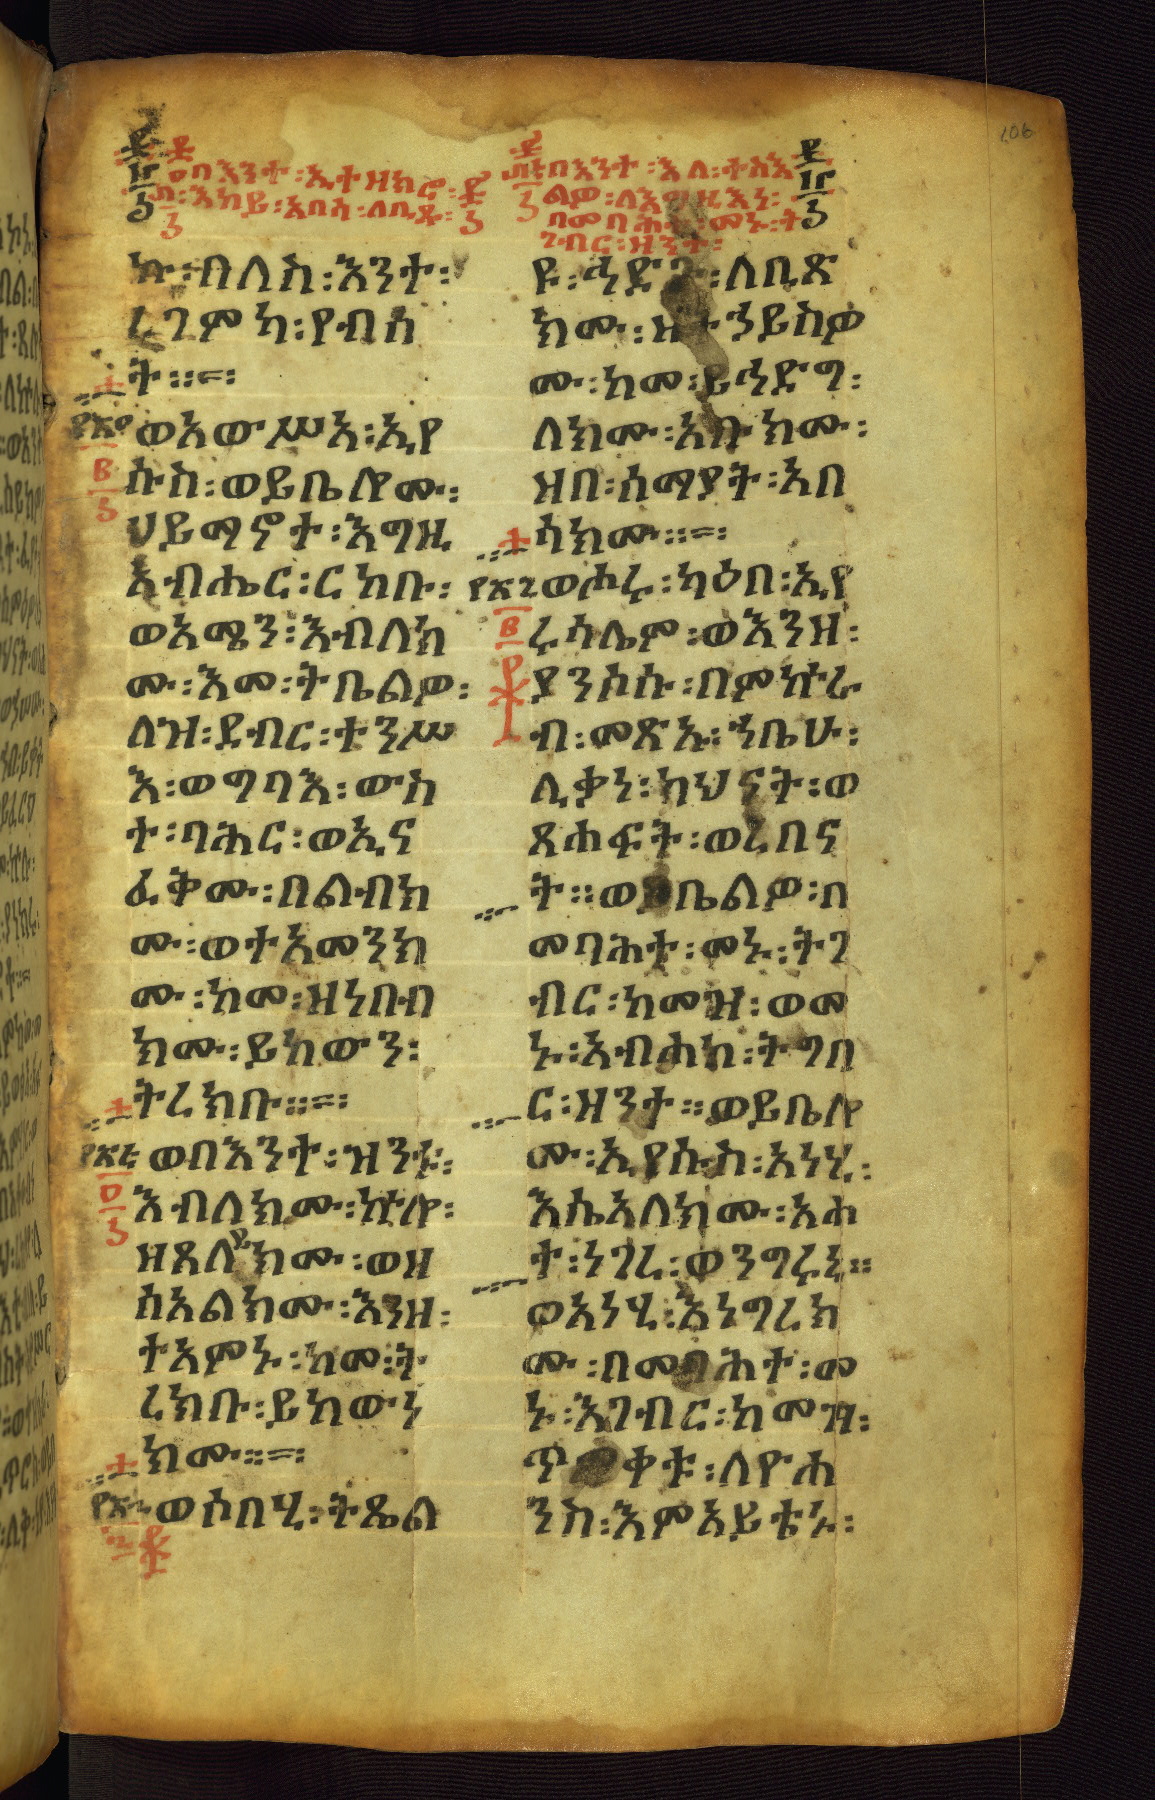 በእንተ ፡ ኢተዘክሮ ፡
እከይ ፡ አበሳ ፡ ለቢጹ ፡
ኵ ፡ በለስ ፡ እንተ ፡
ረገምካ ፡ የብሰ
ት ።
ወአውሥአ ፡ ኢየ
ሱስ ፡ ወይቤሎሙ ፡
ሀይማኖተ ፡ እግዚ
አብሔር ፡ ርከቡ ፡
ወአሜን ፡ እብለክ
ሙ ፡ እመ ፡ ትቤልዎ ፡
ለዝ ፡ ደብር ፡ ተንሥ
እ ፡ ወግባእ ፡ ውስ
ተ ፡ ባሕር ፡ ወኢና
ፈቅሙ ፡ በልብክ
ሙ ፡ ወተአመንክ
ሙ ፡ ከመ ፡ ዝነበብ
ክሙ ፡ ይከውን ፡
ትረክቡ ።
ወበእንተ ፡ ዝንቱ ፡
እብለክሙ ፡ ኵሎ ፡
ዘጸለይክሙ ፡ ወዘ
ሰአልክሙ ፡ እንዘ ፡
ተአምኑ ፡ ከመ ፡ ት
ረክቡ ፡ ይከውነ
ክሙ ።
ወሶበሂ ፡ ትጼል
በእንተ ፡ እለ ፡ ተስእ
ልዎ ፡ ለእግዚእነ ፡
በመባሕተ ፡ መኑ ፡ ት
ገብር ፡ ዘንተ ፡
ዩ ፡ ኅድጉ ፡ ለቢጽ
ክሙ ፡ ዘተኀይስዎ
ሙ ፡ ከመ ፡ ይኅድግ ፡
ለክሙ ፡ አቡክሙ ፡
ዘበ ፡ ሰማያት ፡ አበ
ሳክሙ ።
ወሖሩ ፡ ካዕበ ፡ ኢየ
ሩሳሌም ፡ ወእንዘ ፡
ያንሶሱ ፡ በምኵራ
ብ ፡ መጽኡ ፡ ኀቤሁ ፡
ሊቃነ ፡ ካህናት ፡ ወ
ጸሐፍት ፡ ወረበና
ት ። ወይቤልዎ ፡ በ
መባሕተ ፡ መኑ ፡ ትገ
ብር ፡ ከመዝ ፡ ወመ
ኑ ፡ አብሐከ ፡ ትግበ
ር ፡ ዘንተ ። ወይቤሎ
ሙ ፡ ኢየሱስ ፡ አነሂ ፡
እሴአለክሙ ፡ አሐ
ተ ፡ ነገረ ፡ ወንግሩኒ ።
ወአነሂ ፡ እነግረክ
ሙ ፡ በመባሕተ ፡ መ
ኑ ፡ እገብር ፡ ከመዝ ፡
ጥምቀቱ ፡ ለዮሐ
ንስ ፡ እምአይቴኑ ፡